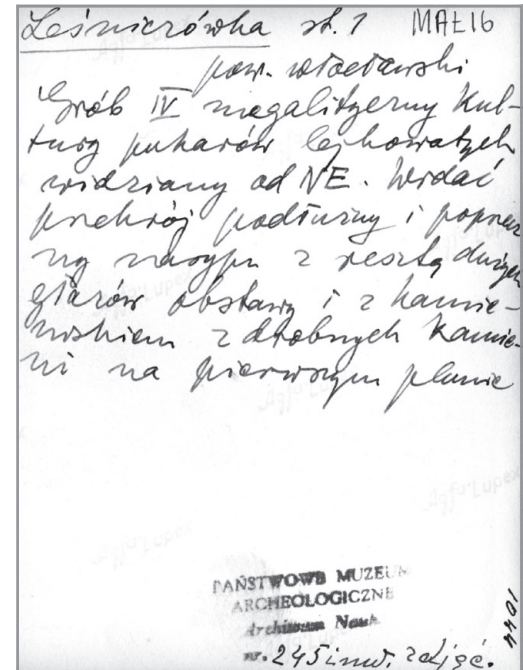 Leśniczówka st. 1 MAŁ16
pow. włocławski
Grób IV megalityczny Kul-
tury pucharów lejkowatych
widziany od NE. Widać
przekrój podłużny i poprzecz
ny nasypu z resztą dużych
głazów obstawy i z kamie-
niskiem z drobnych kamie-
ni na pierwszym planie
PAŃSTWOWE MUZEUM
ARCHEOLOGICZNE
Archiwum Nauk.
nr. 245 inw. zdjęć.
1044